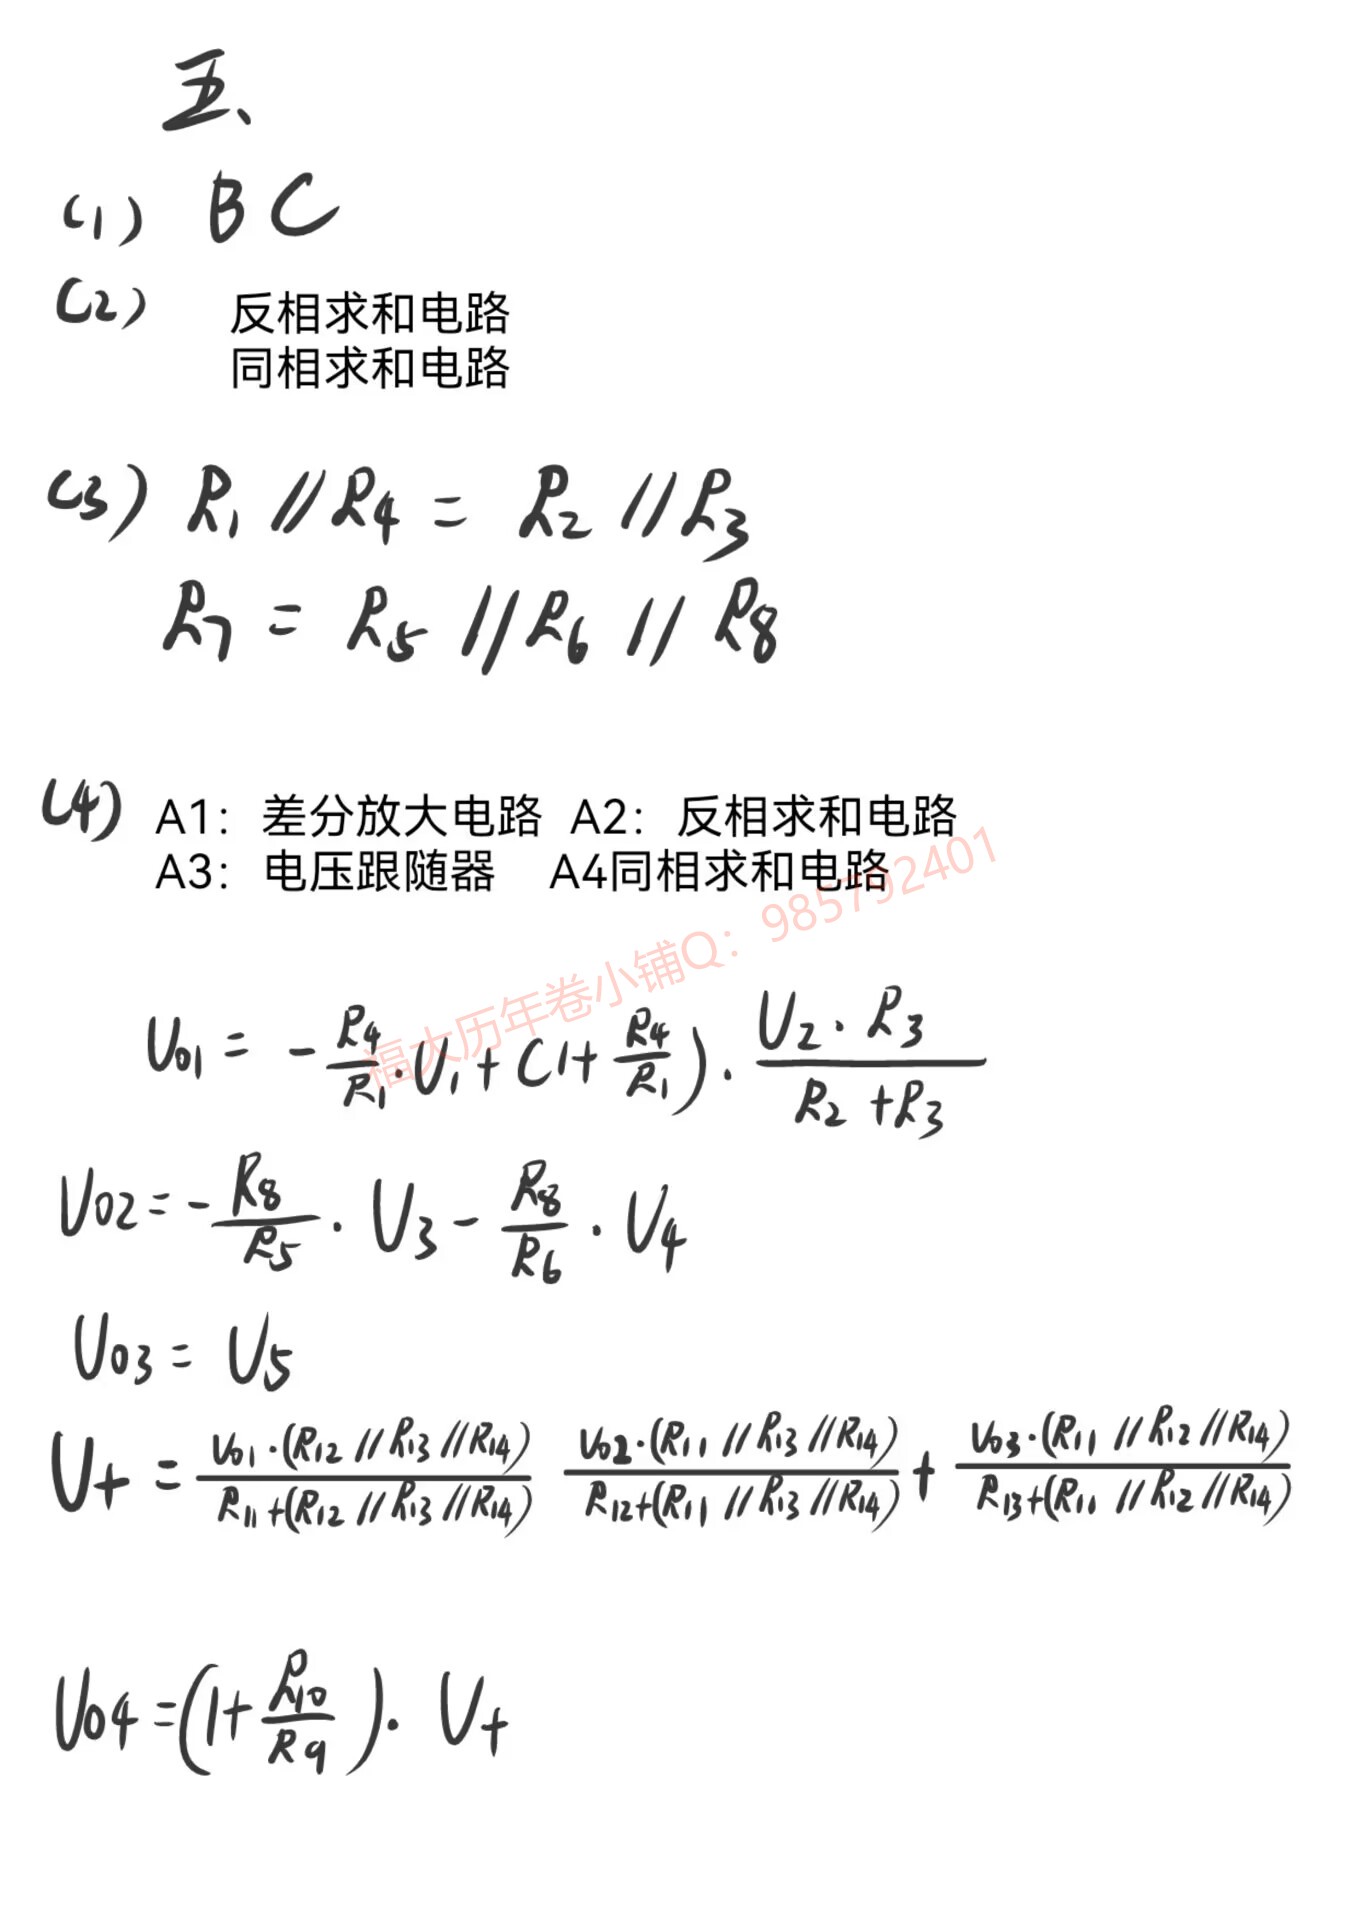 五、
(1) BC
(2) 反相求和电路
同相求和电路
(3) R1 // R4 = R2 // R3
R7 = R5 // R6 // R8
(4) A1：差分放大电路 A2：反相求和电路
A3：电压跟随器 A4同相求和电路
福大历年卷小铺Q：985792401
U01 = - R4/R1 · U1 + (1+ R4/R1) · U2 · R3 / R2 + R3
U02 = - R8/R5 · U3 - R8/R6 · U4
U03 = U5
U+ = U01·(R12 // R13 // R14) / R11+(R12 // R13 // R14) U02·(R11 // R13 // R14) / R12+(R11 // R13 // R14) + U03·(R11 // R12 // R14) / R13+(R11 // R12 // R14)
U04 = (1+ R10/R9) · U+